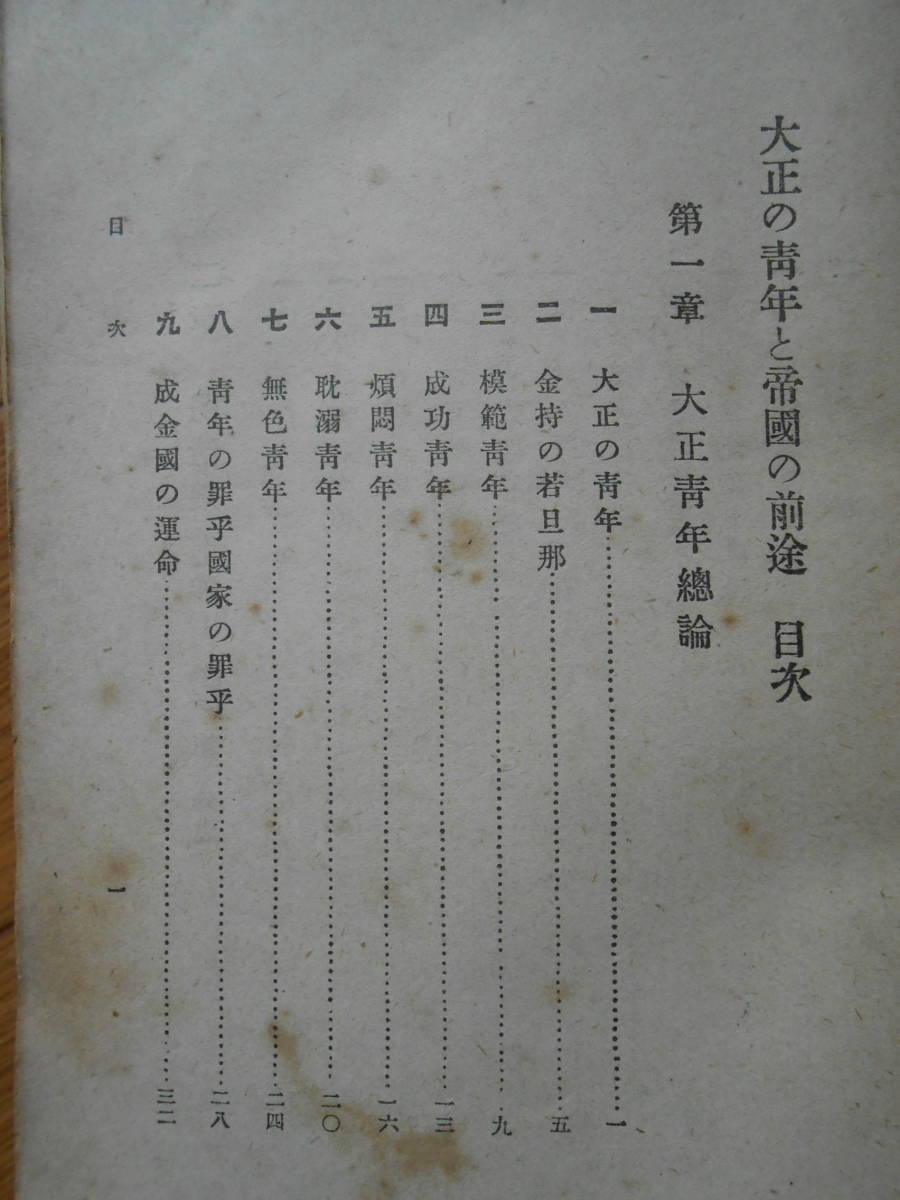 大正の靑年と帝國の前途　目次
第一章　大正靑年總論
一　大正の靑年……一
二　金持の若旦那……五
三　模範靑年……九
四　成功靑年……一三
五　煩悶靑年……一六
六　耽溺靑年……二〇
七　無色靑年……二四
八　靑年の罪乎國家の罪乎……二八
九　成金國の運命……三二
目次　一